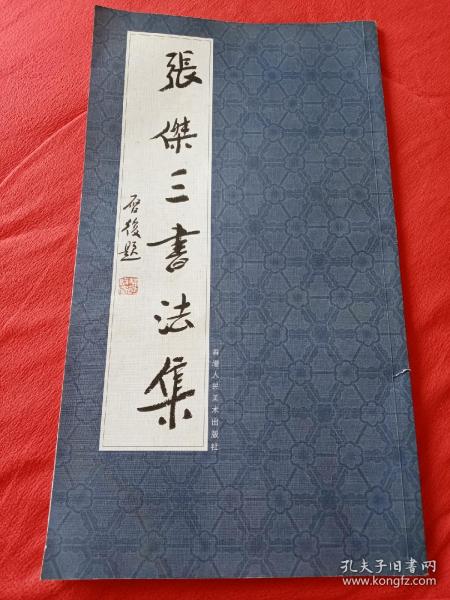 張傑三書法集
啓後題
香港人民美术出版社
孔夫子旧书网
www.kongfz.com